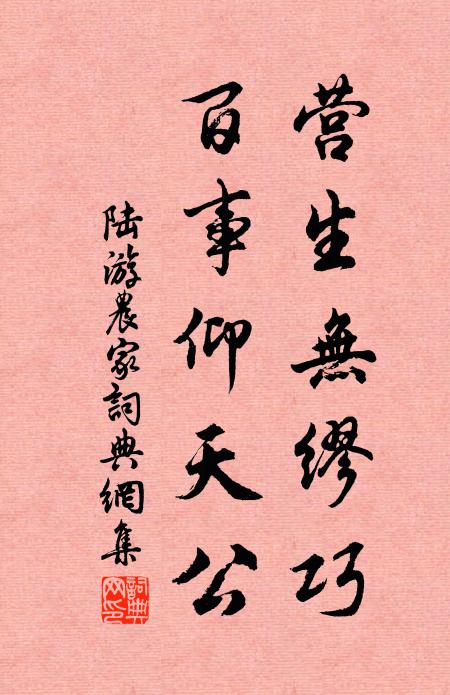 营生無缪巧
百事仰天公
陆游農家詞典網集
詞典網印